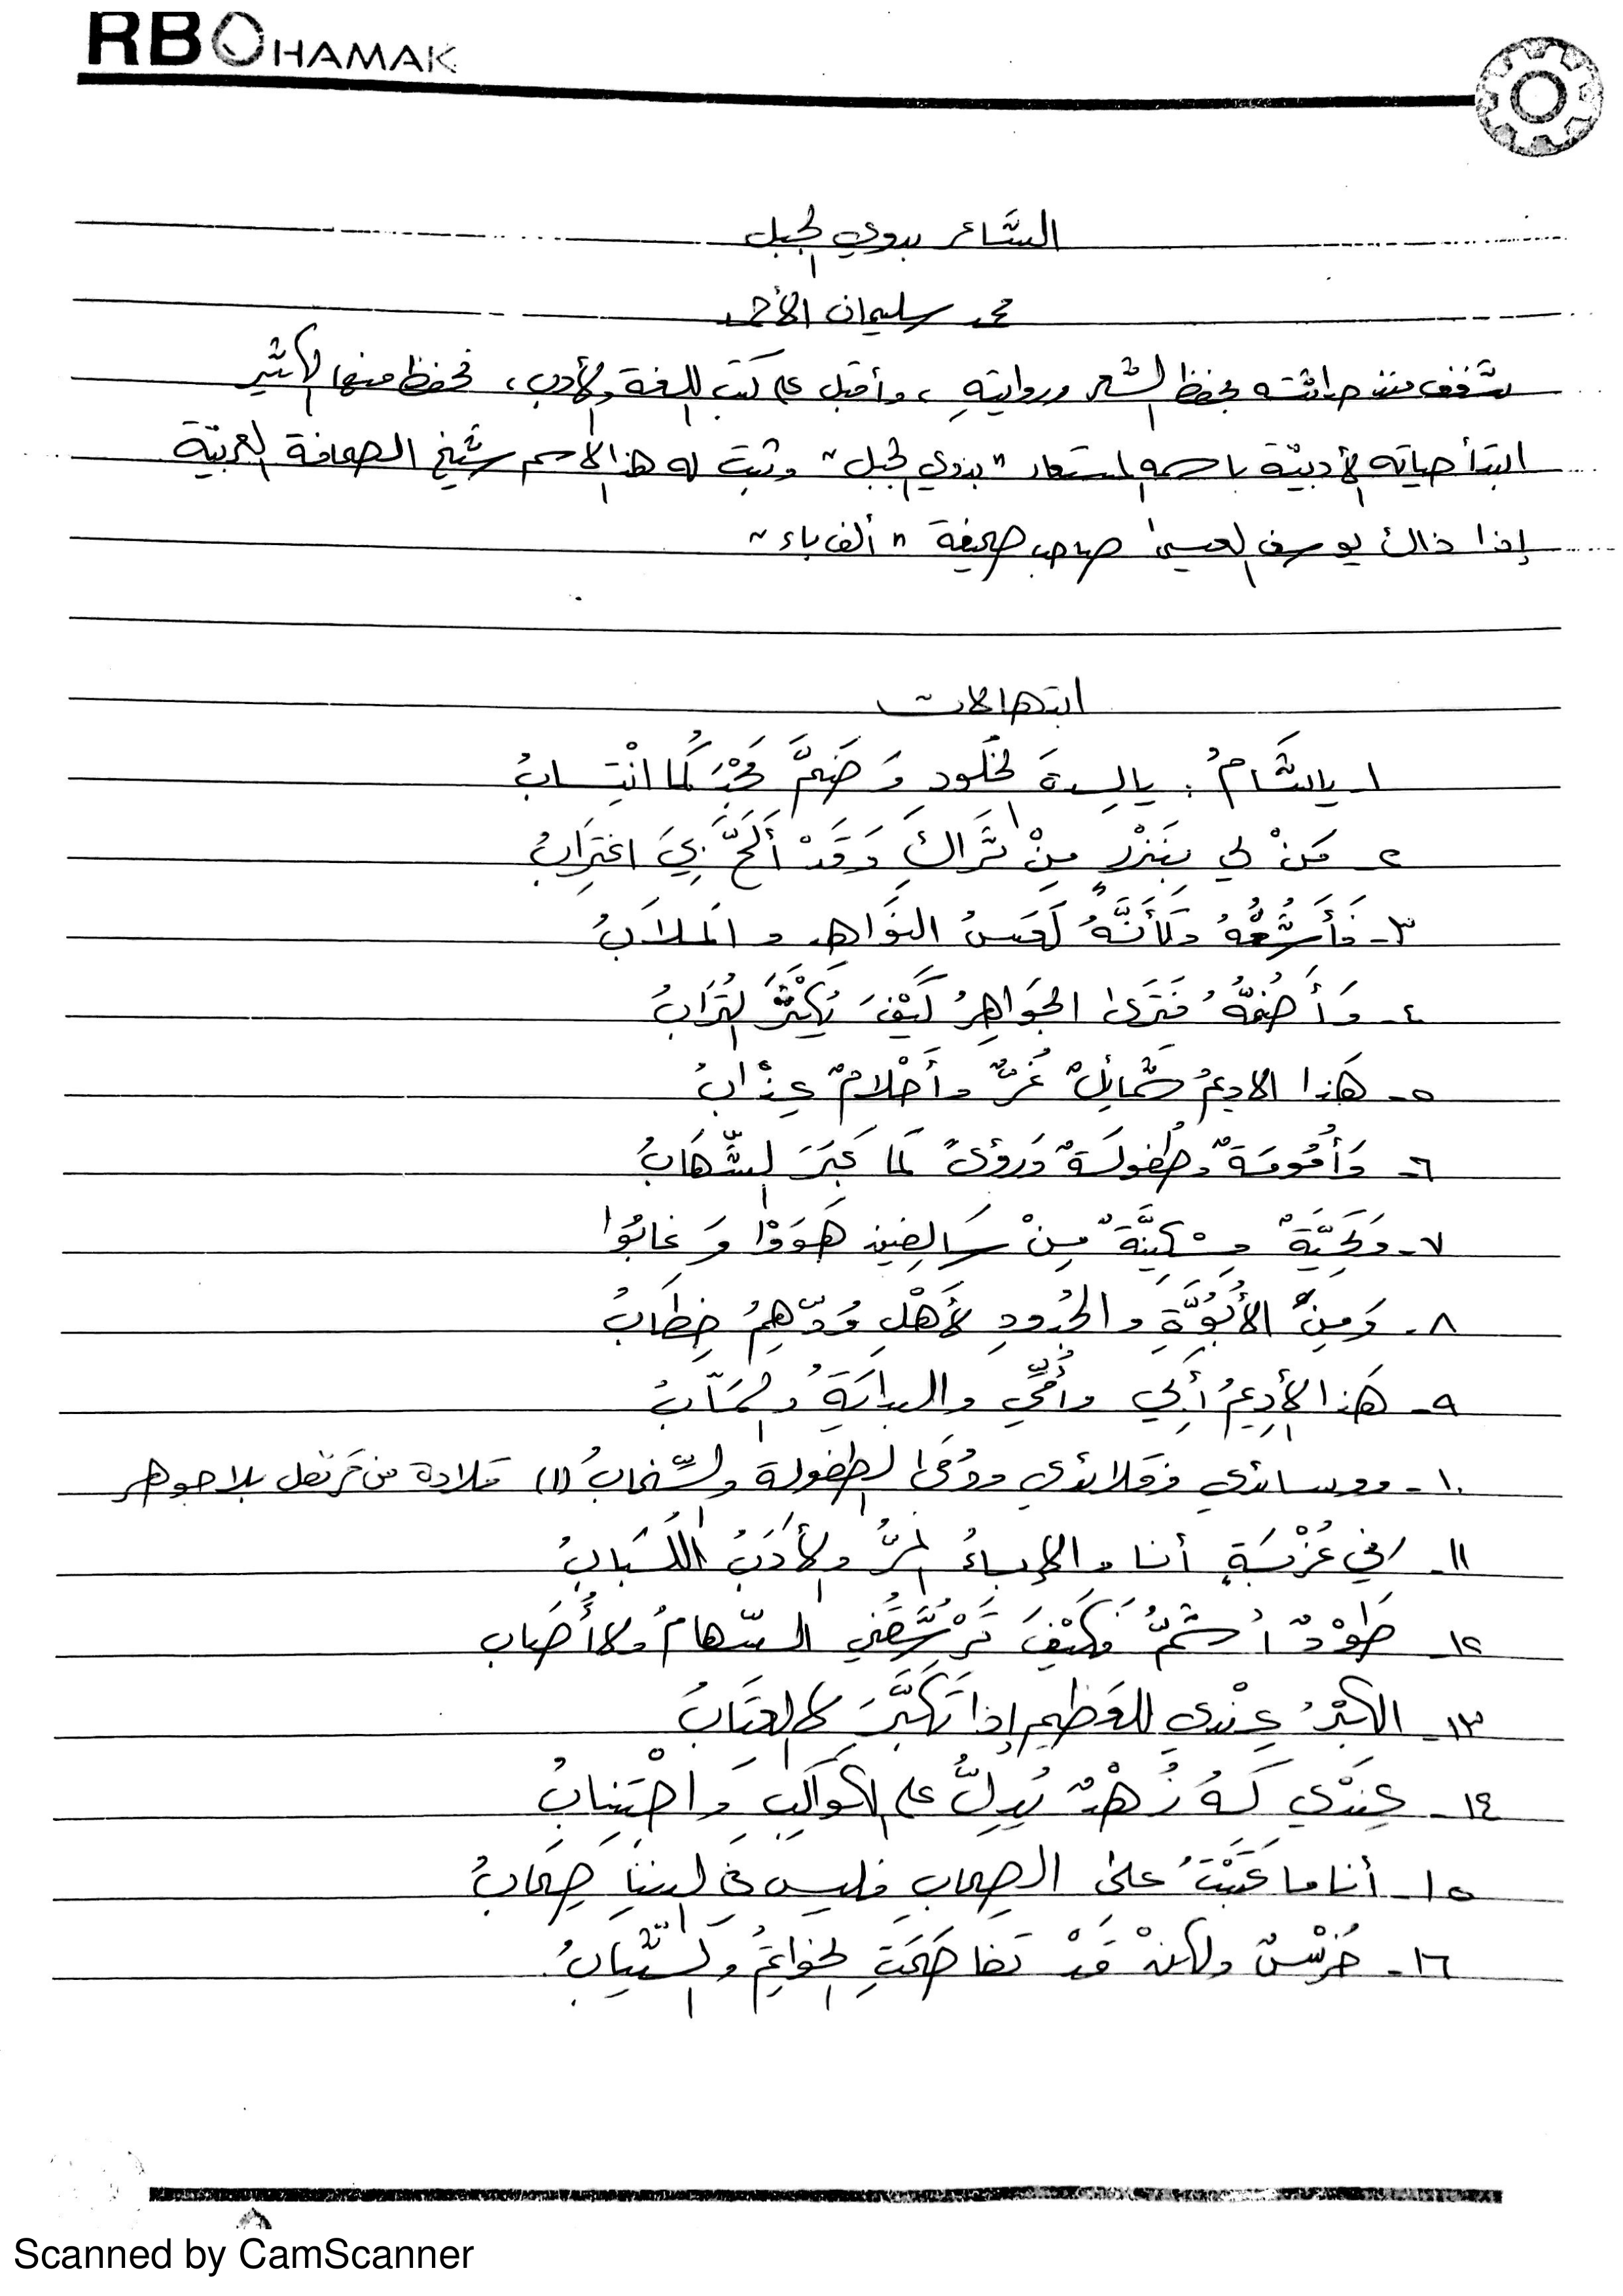 RBOHAMAK
الشَّاعر بدوي الجبل
محمد سليمان الأحمد
شغف منذ حداثته بحفظ الشعر وروايتهِ ، وأقبل على كتب اللغة والأدب ، فحفظ منها الكثير
ابتدأ حياته الأدبيّة باسمه المستعار " بدوي الجبل " وثبت له هذا الاسم شيخ الصحافة العربيّة
إذا ذاك يوسف العيسى صاحب صحيفة " ألف باء "
ابتهالات
١ـ يا لشَّامُ : يا لِدةَ الخُلودِ وَضَمَّ مَجْدَكُما انْتِسابُ
٢ـ مَنْ لي بِنَزْرٍ مِنْ ثَراكِ وَقَدْ أَلَحَّ بِيَ اغتِرَابُ
٣ـ فَأَشُمُّهُ وَكَأَنَّهُ لَعَسُ النَوَاهِدِ و المَلَابُ
٤ـ وَأَضُمُّهُ فَتَرَى الجَوَاهِرُ كَيْفَ يُكْتَنَزُ التُرَابُ
٥ـ هَذا الاديمُ شَمائِلٌ غُرٌّ وأَحْلامٌ عِذَابُ
٦ـ وَأُمُومَةٌ وطُفولَةٌ وَرُؤىً كَما عَبَرَ الشِّهَابُ
٧ـ وَتَحِيَّةٌ مِسْكِيَّةٌ مِنْ سَالِفِينَ هَوَوْا وَ غابُوا
٨ـ وَمِنَ الأُبُوَّةِ والجُدودِ لأَهْلِ وُدّهِمُ خِطَابُ
٩ـ هَذا الأَدِيمُ أَبِي وأُمِّي والبِدايَةُ والمَآبُ
١٠ـ ووسائدي وقلائدي ودُمَى الطفولة والسِّخابُ (١) قلادة من قرنفل بلا جوهر
١١ـ اني غُرْبَةٍ أنا والإِباءُ المُرُّ والأَدَبُ اللُبَابُ
١٢ـ طَوْدٌ أَشَمُّ فَكَيْفَ تَرْشُقُني السِّهامُ ولا أُصَاب
١٣ـ الكِبْرُ عِنْدي للعَظيمِ إذا تَكَبَّرَ لا العِتَابُ
١٤ـ عِنْدي لَهُ زُهْدٌ يُدِلُّ على الكَواكِبِ وَاجْتِنابُ
١٥ـ أنا ما عَتَبْتُ عَلى الصِحابِ فليس في الدنيا صِحابُ
١٦ـ خُرْسٌ ولكنْ قَدْ تَفاصَحَتِ الخَواتِمُ والثِّيَابُ
Scanned by CamScanner